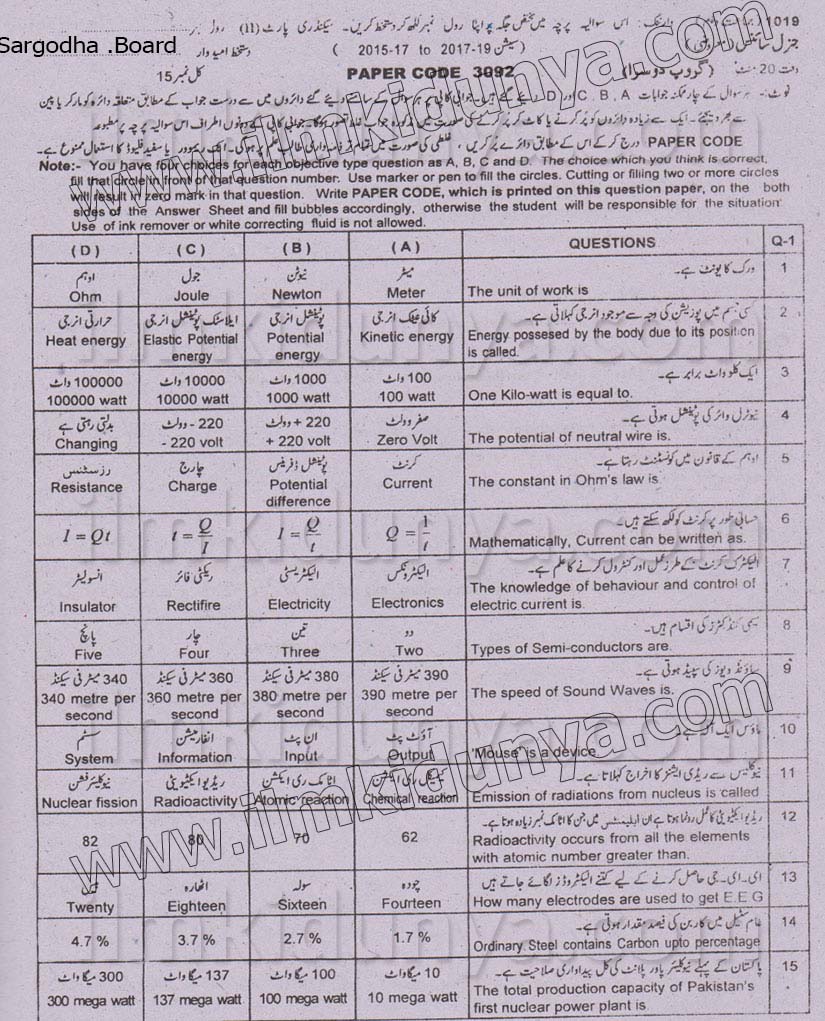 1019
وارننگ:۔ اس سوالیہ پرچہ میں مختص جگہ پر اپنا رول نمبر لکھ کر دستخط کریں۔ سیکنڈری پارٹ (11) رول نمبر
Sargodha .Board
جنرل سائنس (معروضی)
( 2015-17 to 2017-19 سیشن )
دستخط امیدوار
وقت 20 منٹ
(گروپ دوسرا)
PAPER CODE 3092
کل نمبر 15
نوٹ:۔ ہر سوال کے چار ممکنہ جوابات C, B, A اور D دیئے گئے ہیں۔ جوابی کاپی پر ہر سوال کے سامنے دیئے گئے دائروں میں سے درست جواب کے مطابق متعلقہ دائرہ کو مارکر یا پین
سے بھر دیجئے۔ ایک سے زیادہ دائروں کو پُر کرنے یا کاٹ کر پُر کرنے کی صورت میں مذکورہ جواب غلط تصور ہوگا۔ جوابی کاپی کے دونوں اطراف اس سوالیہ پرچہ پر مطبوعہ
PAPER CODE درج کر کے اس کے مطابق دائرے پُر کریں، غلطی کی صورت میں تمام تر ذمہ داری طالب علم پر ہوگی۔ انک ریموور یا سفید فلیوڈ کا استعمال ممنوع ہے۔
Note:- You have four choices for each objective type question as A, B, C and D. The choice which you think is correct,
fill that circle in front of that question number. Use marker or pen to fill the circles. Cutting or filling two or more circles
will result in zero mark in that question. Write PAPER CODE, which is printed on this question paper, on the both
sides of the Answer Sheet and fill bubbles accordingly, otherwise the student will be responsible for the situation.
Use of ink remover or white correcting fluid is not allowed.
( D ) ( C ) ( B ) ( A ) QUESTIONS Q-1
اوہم جول نیوٹن میٹر ورک کا یونٹ ہے۔ 1
Ohm Joule Newton Meter The unit of work is
حرارتی انرجی ایلاسٹک پوٹینشل انرجی پوٹینشل انرجی کائی نیٹک انرجی کسی جسم میں پوزیشن کی وجہ سے موجود انرجی کہلاتی ہے۔ 2
Heat energy Elastic Potential energy Potential energy Kinetic energy Energy possesed by the body due to its position
is called.
100000 واٹ 10000 واٹ 1000 واٹ 100 واٹ ایک کلو واٹ برابر ہے۔ 3
100000 watt 10000 watt 1000 watt 100 watt One Kilo-watt is equal to.
بدلتی رہتی ہے 220 - وولٹ 220 + وولٹ صفر وولٹ نیوٹرل وائر کی پوٹینشل ہوتی ہے۔ 4
Changing - 220 volt + 220 volt Zero Volt The potential of neutral wire is.
رزسٹنس چارج پوٹینشل ڈفرینس کرنٹ اوہم کے قانون میں کونسٹنٹ رہتا ہے۔ 5
Resistance Charge Potential difference Current The constant in Ohm's law is
حسابی طور پر کرنٹ کو لکھ سکتے ہیں۔ 6
I = Qt t = Q/I I = Q/t Q = 1/t Mathematically, Current can be written as.
انسولیٹر ریکٹی فائر الیکٹریسٹی الیکٹرونکس الیکٹرک کرنٹ کے طرز عمل اور کنٹرول کرنے کا علم ہے۔ 7
Insulator Rectifire Electricity Electronics The knowledge of behaviour and control of
electric current is.
پانچ چار تین دو سیمی کنڈکٹرز کی اقسام ہیں۔ 8
Five Four Three Two Types of Semi-conductors are.
340 میٹر فی سیکنڈ 360 میٹر فی سیکنڈ 380 میٹر فی سیکنڈ 390 میٹر فی سیکنڈ ساؤنڈ ویوز کی سپیڈ ہوتی ہے۔ 9
340 metre per second 360 metre per second 380 metre per second 390 metre per second The speed of Sound Waves is.
سسٹم انفارمیشن ان پٹ آؤٹ پٹ ماؤس ایک آلہ ہے۔ 10
System Information Input Output 'Mouse' is a device.
نیوکلیئر فشن ریڈیو ایکٹیویٹی اٹامک ری ایکشن کیمیکل ری ایکشن نیوکلیس سے ریڈی ایشنز کا اخراج کہلاتا ہے۔ 11
Nuclear fission Radioactivity Atomic reaction Chemical reaction Emission of radiations from nucleus is called
ریڈیو ایکٹیویٹی کا عمل رونما ہوتا ہے ان ایلیمنٹس میں جن کا اٹامک نمبر زیادہ ہوتا ہے۔ 12
82 80 70 62 Radioactivity occurs from all the elements
with atomic number greater than.
بیس اٹھارہ سولہ چودہ ای۔ای۔جی حاصل کرنے کے لیے کتنے الیکٹروڈز لگائے جاتے ہیں 13
Twenty Eighteen Sixteen Fourteen How many electrodes are used to get E.E.G
عام سٹیل میں کاربن کی فیصد مقدار ہوتی ہے۔ 14
4.7 % 3.7 % 2.7 % 1.7 % Ordinary Steel contains Carbon upto percentage
300 میگا واٹ 137 میگا واٹ 100 میگا واٹ 10 میگا واٹ پاکستان کے پہلے نیوکلیئر پاور پلانٹ کی کل پیداواری صلاحیت ہے۔ 15
300 mega watt 137 mega watt 100 mega watt 10 mega watt The total production capacity of Pakistan's
first nuclear power plant is
www.ilmkidunya.com
www.ilmkidunya.com
ilmkidunya.com